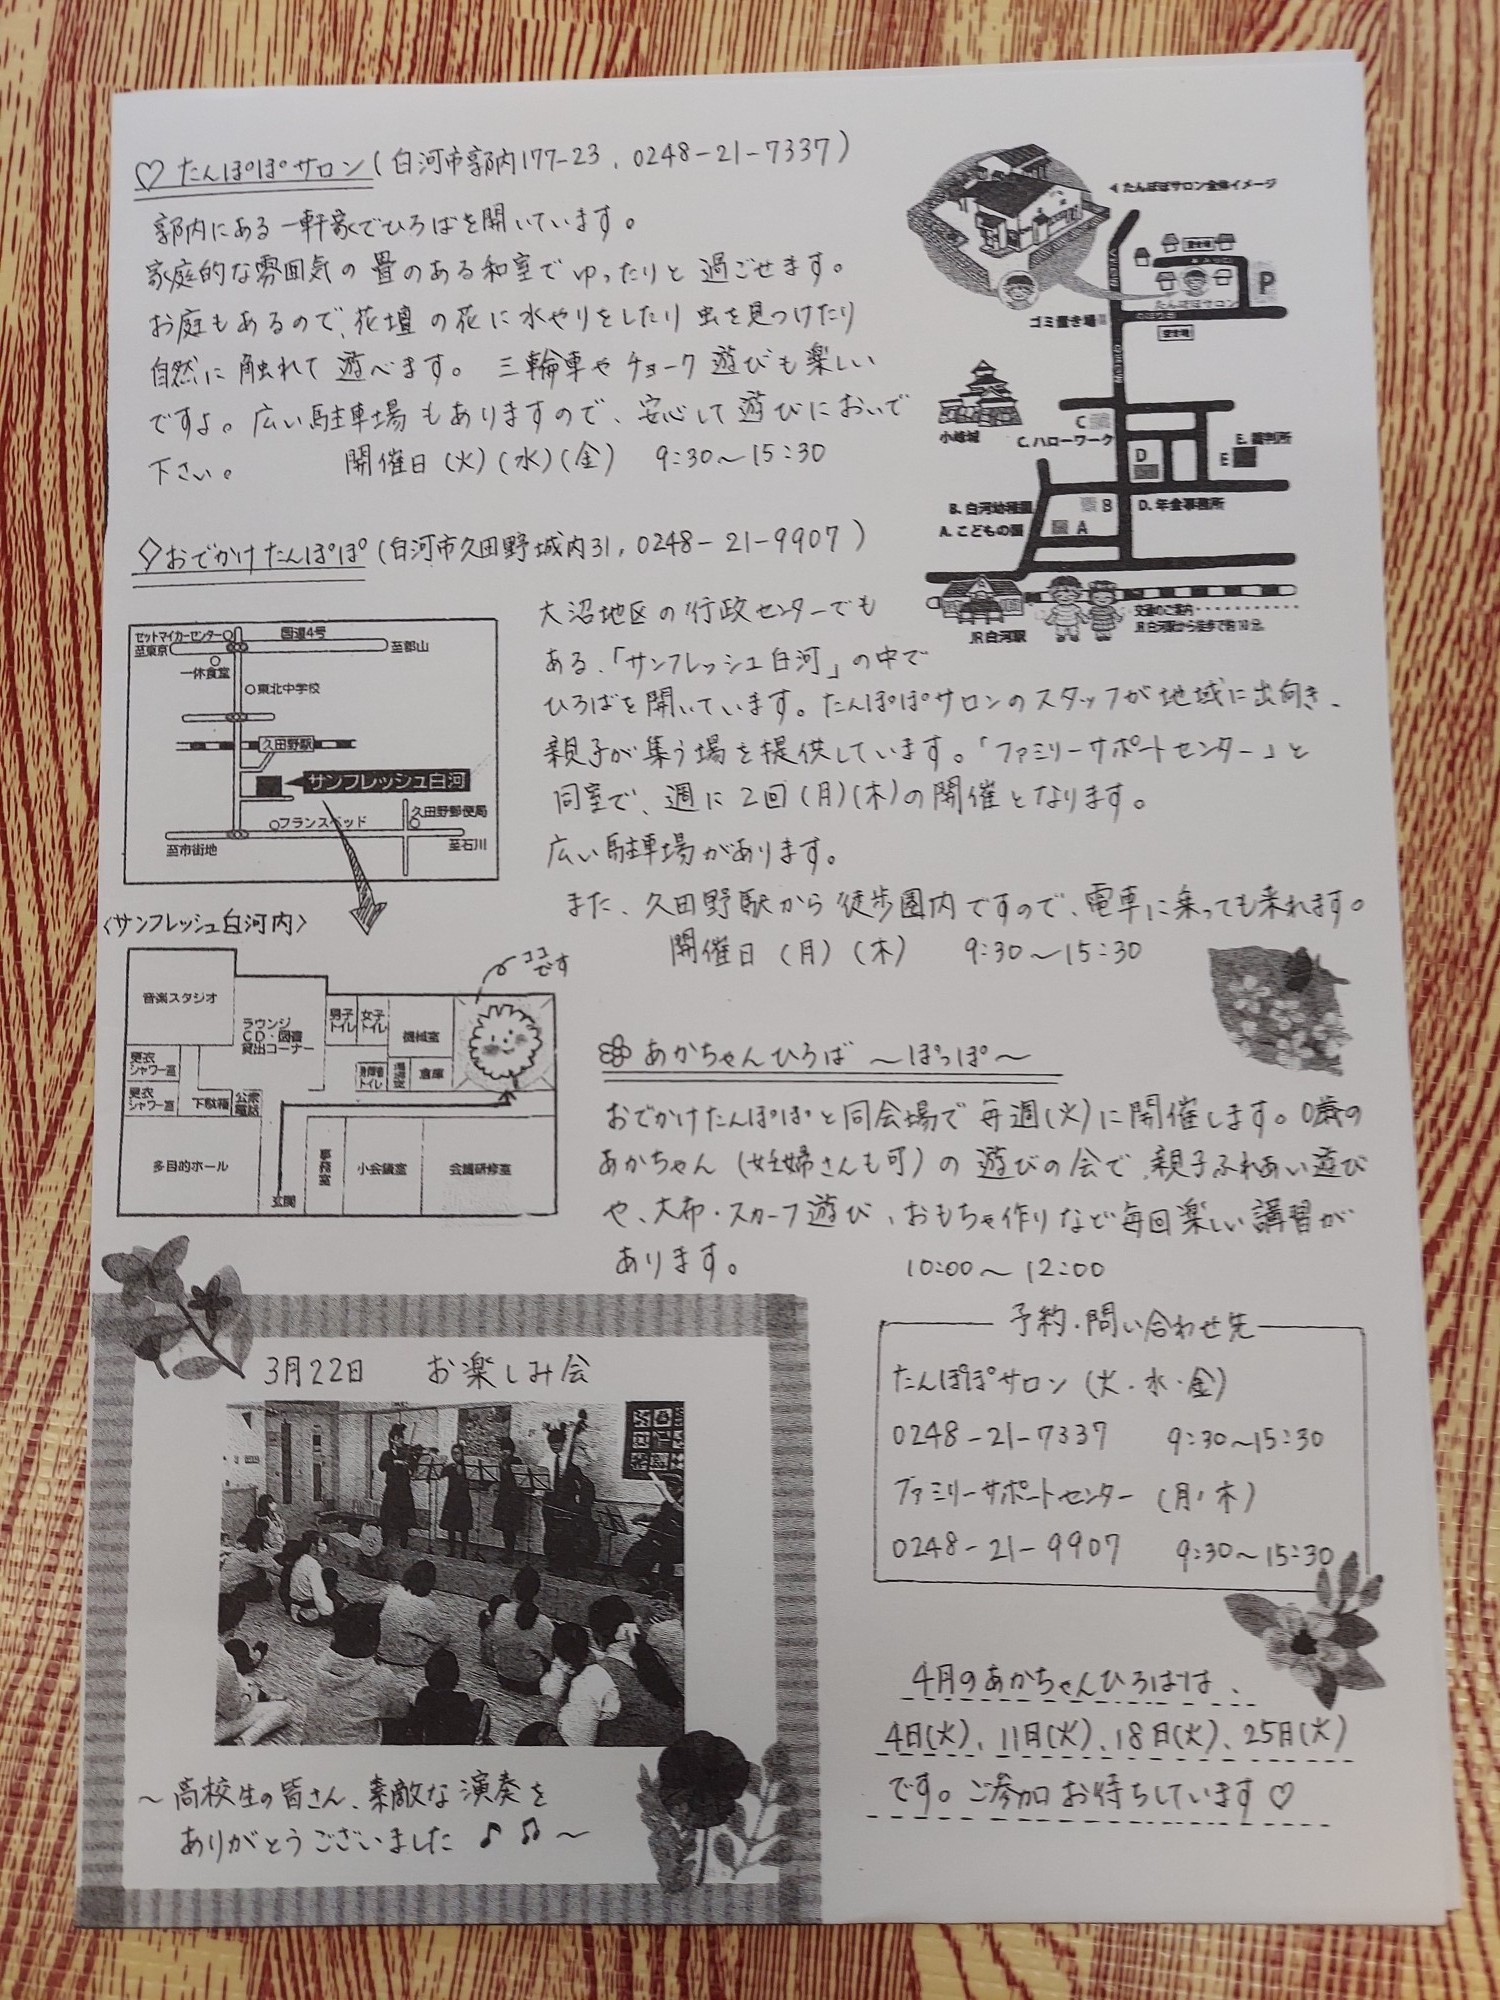 ♡たんぽぽサロン(白河市郭内177-23, 0248-21-7337)
郭内にある一軒家でひろばを開いています。
家庭的な雰囲気の畳のある和室でゆったりと過ごせます。
お庭もあるので、花壇の花に水やりをしたり虫を見つけたり
自然に触れて遊べます。三輪車やチョーク遊びも楽しい
ですよ。広い駐車場もありますので、安心して遊びにおいで
下さい。 開催日(火)(水)(金) 9:30~15:30
◀たんぽぽサロン全体イメージ
P
たんぽぽサロン
ゴミ置き場
小峰城
C
C.ハローワーク
D
E.裁判所
E
B.白河幼稚園
B
D.年金事務所
A.こどもの園
A
JR白河駅
交通のご案内
JR白河駅から徒歩で約10分。
◇おでかけたんぽぽ(白河市久田野城内31, 0248-21-9907)
大沼地区の行政センターでも
ある、「サンフレッシュ白河」の中で
ひろばを開いています。たんぽぽサロンのスタッフが地域に出向き、
親子が集う場を提供しています。「ファミリーサポートセンター」と
同室で、週に2回(月)(木)の開催となります。
広い駐車場があります。
また、久田野駅から徒歩圏内ですので、電車に乗っても来れます。
開催日(月)(木) 9:30~15:30
ゼットマイカーセンター
国道4号
至東京
至郡山
一休食堂
東北中学校
久田野駅
サンフレッシュ白河
フランスベッド
久田野郵便局
至市街地
至石川
〈サンフレッシュ白河内〉
ココです
音楽スタジオ
ラウンジ
CD・図書
貸出コーナー
男子トイレ
女子トイレ
機械室
更衣
シャワー室
身障者トイレ
倉庫
更衣
シャワー室
下駄箱
公衆電話
多目的ホール
玄関
事務室
小会議室
会議研修室
あかちゃんひろば ～ぽっぽ～
おでかけたんぽぽと同会場で毎週(火)に開催します。0歳の
あかちゃん(妊婦さんも可)の遊びの会で、親子ふれあい遊び
や、大布・スカーフ遊び、おもちゃ作りなど毎回楽しい講習が
あります。 10:00~12:00
予約・問い合わせ先
たんぽぽサロン(火・水・金)
0248-21-7337 9:30~15:30
ファミリーサポートセンター(月・木)
0248-21-9907 9:30~15:30
3月22日 お楽しみ会
~高校生の皆さん、素敵な演奏を
ありがとうございました♪♫~
4月のあかちゃんひろばは、
4日(火)、11日(火)、18日(火)、25日(火)
です。ご参加お待ちしています♡